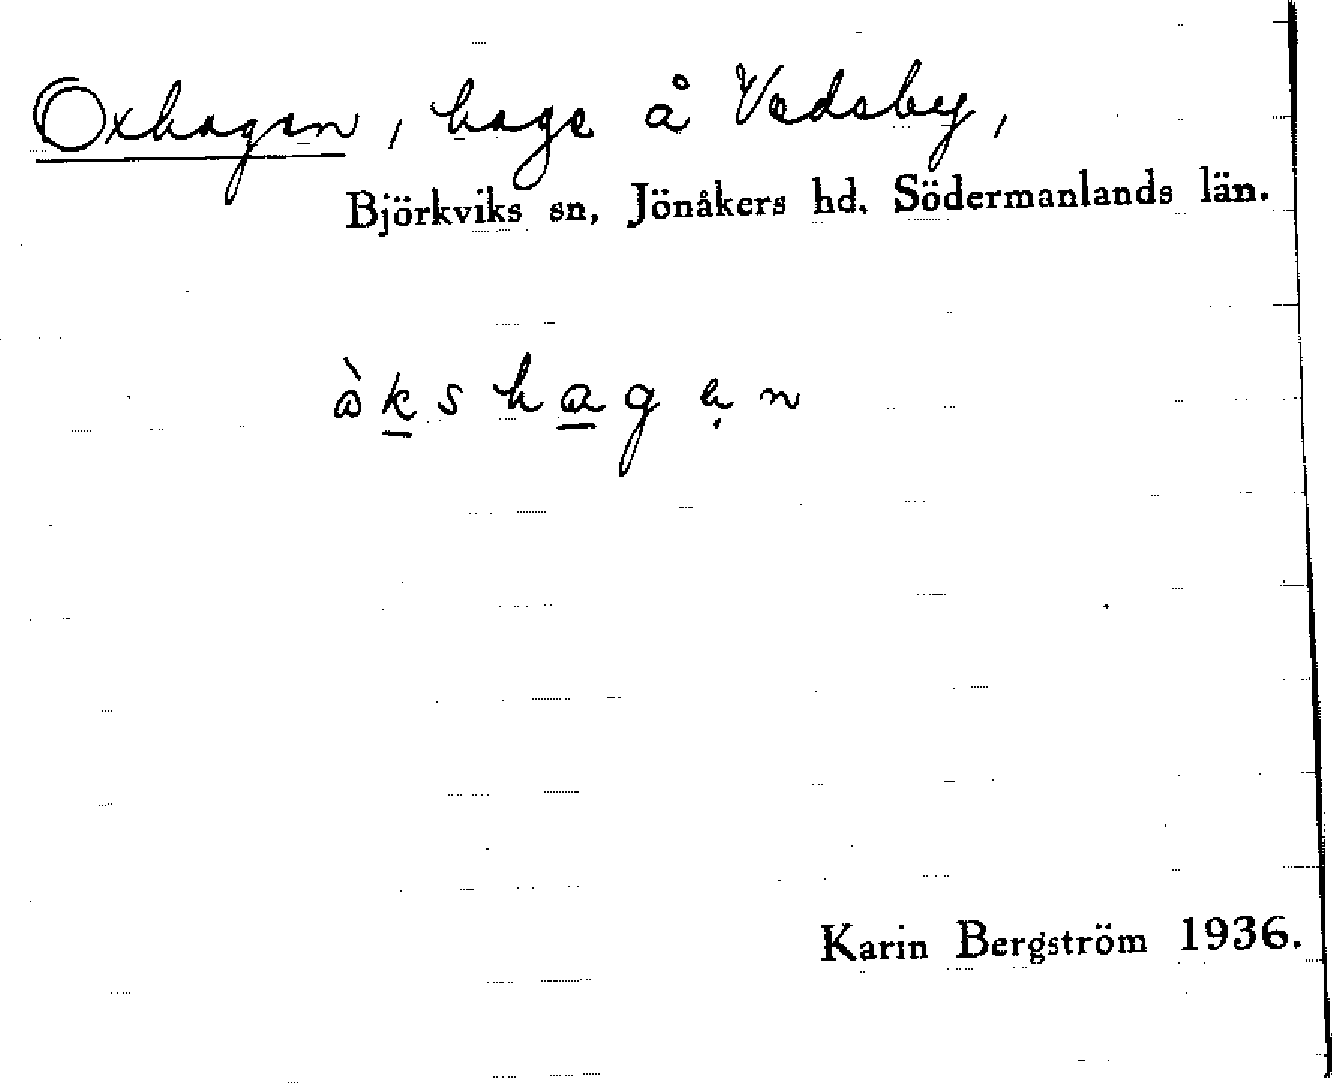 Oxhagen, hage å Vedsby,
Björkviks sn, Jönåkers hd. Södermanlands län.
åkshagen
Karin Bergström 1936.